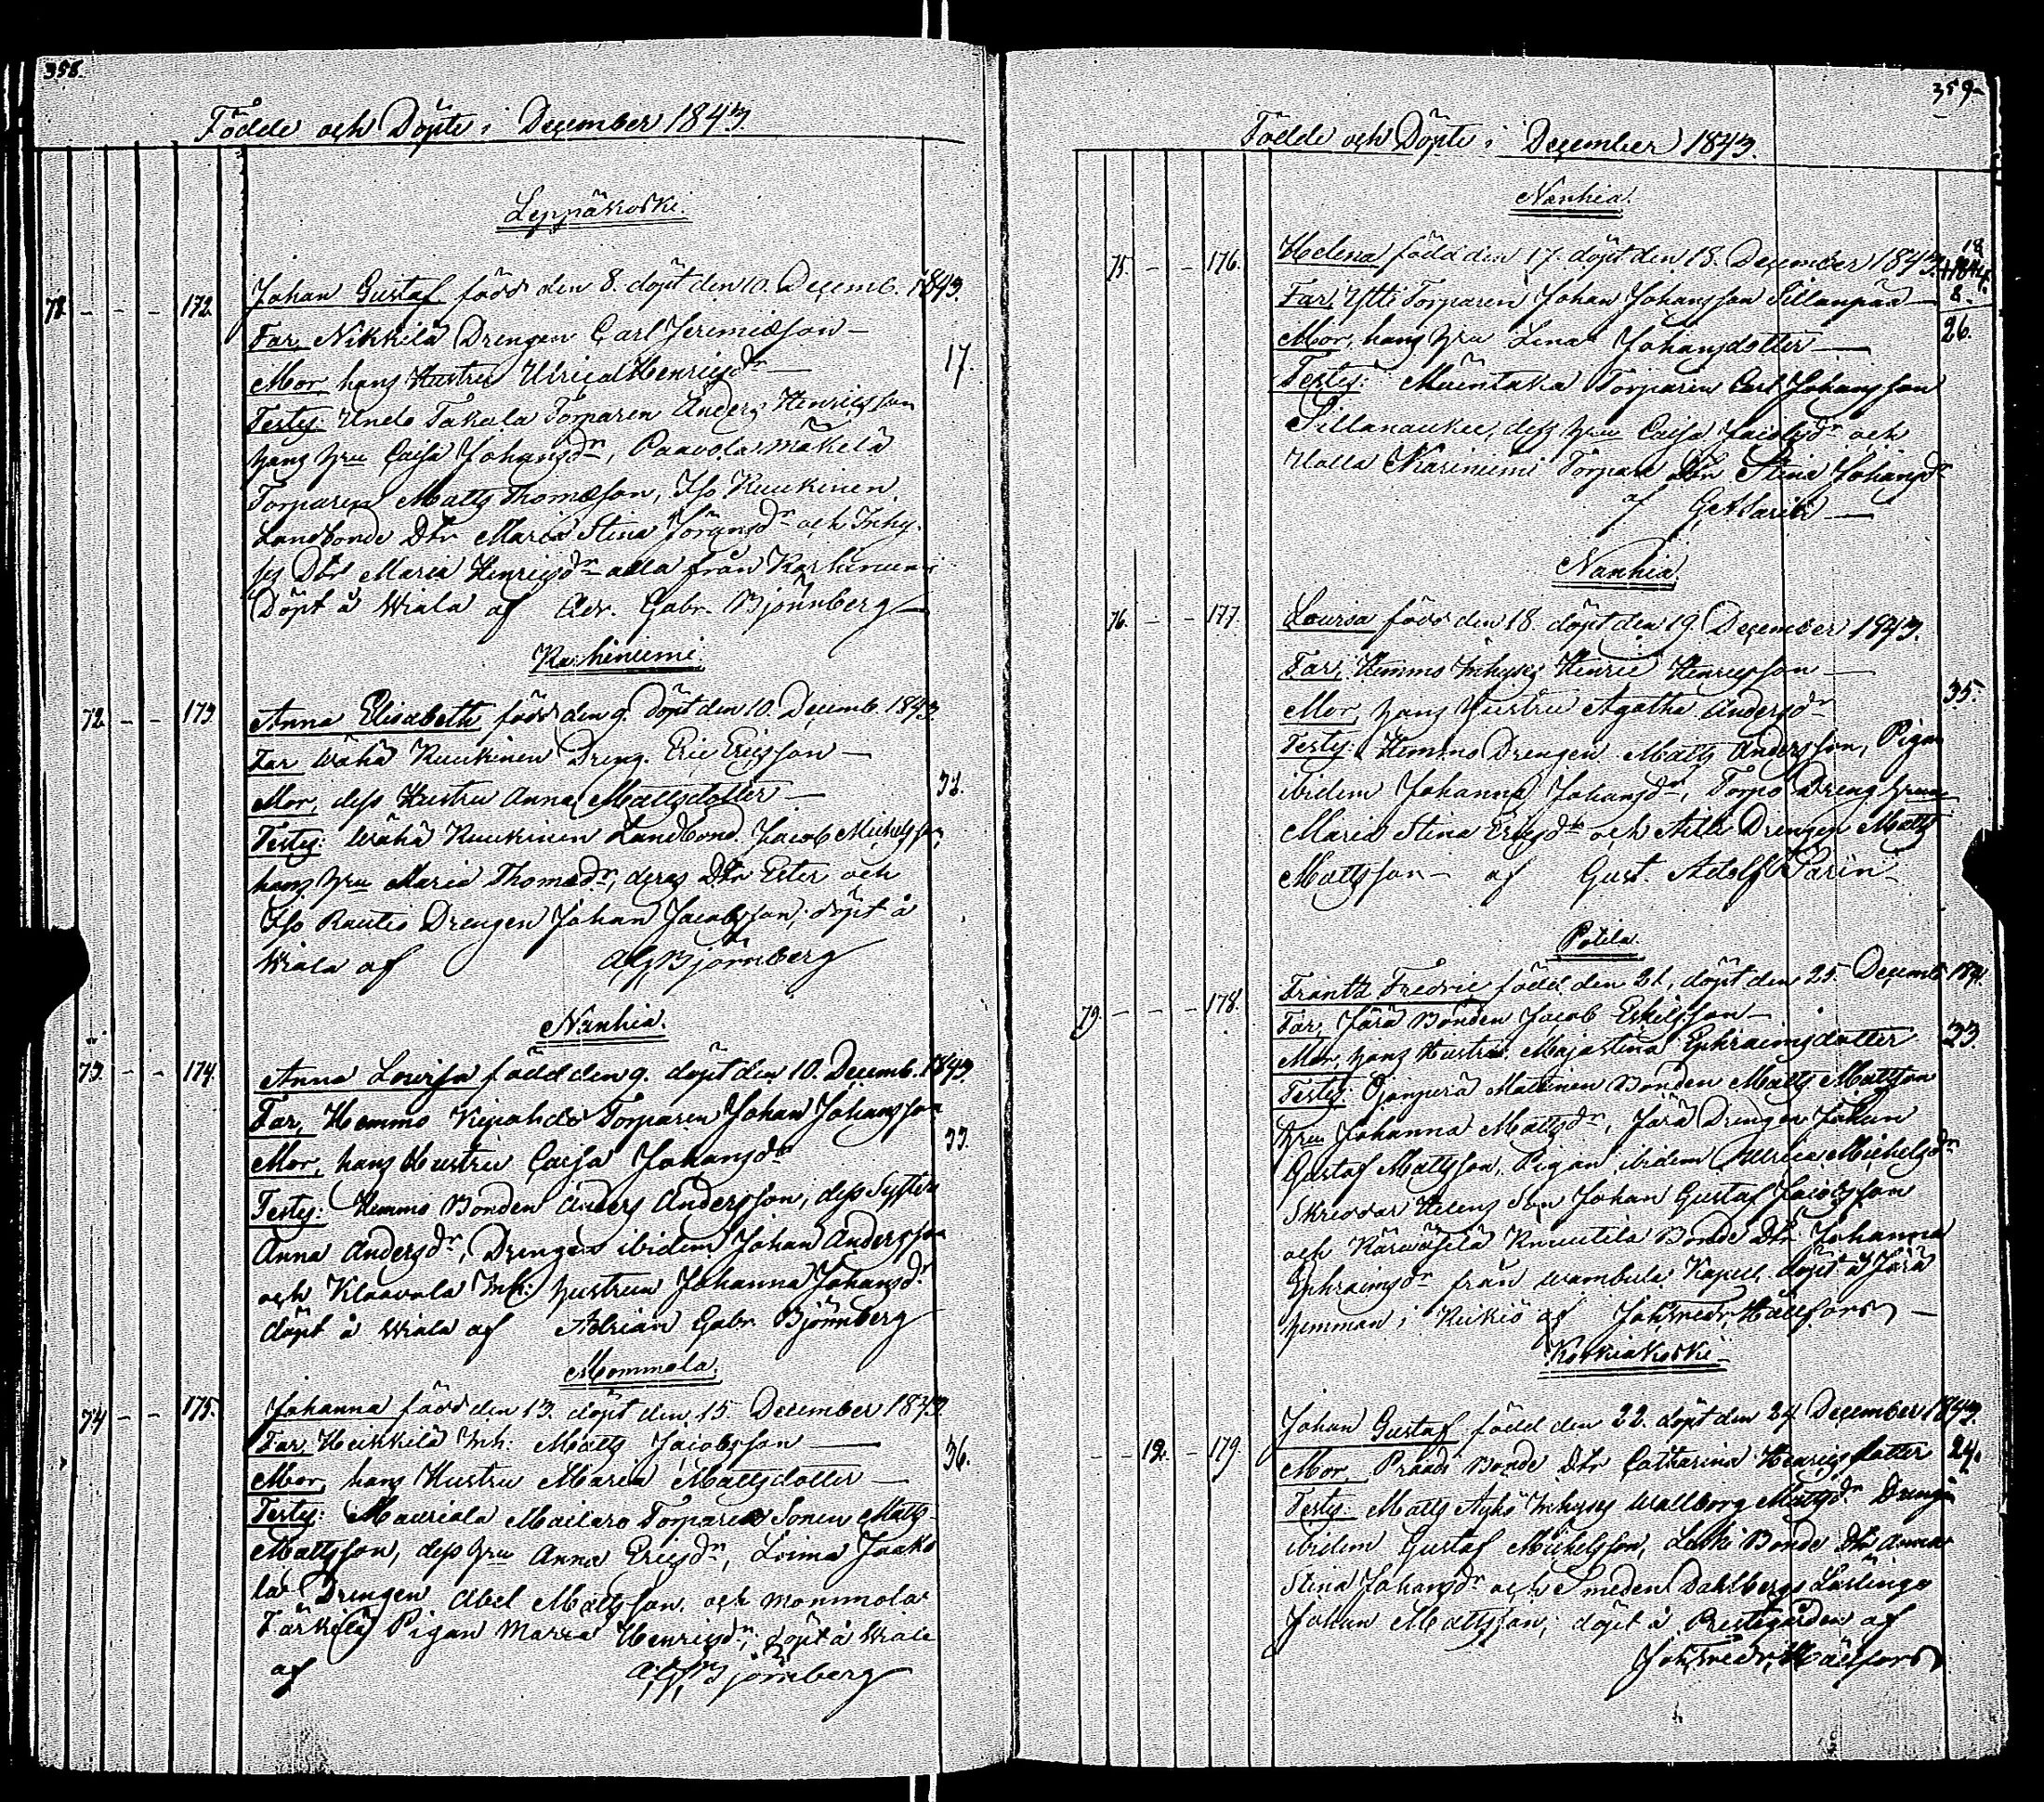 358.
Födde och Döpte i December 1843.
Leppäkoski.
78. – – – 172. Johan Gustaf född den 8. döpt den 10. Decemb. 1843.
Far, Nikkilä Drengen Carl Jeremiæson –
Mor, hans Hustru Ulrica Henricsdr – 17.
Testes: Undo Takala Torparen Anders Henricsson
hans hru Caisa Johansdr, Paavola Mäkelä
Torparen Matts Thomæson, Iso Kuukinen
Landbonde Dtr Maria Stina Göransdr och Inhy-
ses Dtr Maria Henricsdr alla från Karhiniemi
Döpt å Wiala af Adr. Gabr. Björnberg
Karhiniemi
72. – – 173. Anna Elisabeth född den 9. Döpt den 10. Decemb. 1843.
Far Wähä Kuukinen Dreng. Eric Ericsson –
Mor, dess Hustru Anna Mattsdotter – 32.
Testes: Wähä Kuukinen Landbond. Jacob Michelsson,
hans hru Maria Thomædr, deras Dtr Ester och
Iso Rautio Drengen Johan Jacobsson; döpt å
Wiala af AGBjörnberg
Nanhia.
73. – – 174. Anna Lovisa född den 9. döpt den 10. Decemb. 1843.
Far, Hemmo Torparen Johan Johansson
Mor, hans Hustru Caisa Johansdr 33.
Testes: Hemmo Bonden Anders Andersson, dess Syster
Anna Andersdr, Drengen ibidem Johan Andersson
och Klaavola Inh: hustrun Johanna Johansdr
döpt å Wiala af Adrian Gabr. Björnberg
Mommola.
74 – – 175. Johanna född den 13. döpt den 15. December 1843.
Far, Heikkilä Inh: Matts Jacobsson –
Mor, hans Hustru Maria Mattsdotter – 36.
Testes: Mauriala Mailaro Torpare Sonen Matts
Mattsson, dess hru Anna Ericsdr, Loima Jaako
la Drengen Abel Mattsson, och Mommola
Färkilä Pigan Maria Henricsdr; döpt å Wiala
af AGBjörnberg
359.
Födde och Döpte i December 1843.
Nanhia.
75. – – 176. Helena född den 17. döpt den 18. December 1843. 18
Far, Ytti Torparen Johan Johansson Sillanpää – 8.
Mor, hans hru Lina Johansdotter – 26.
Testes: Torparen Carl Johansson
Sillanaukee, dess hru Caisa Jacobsdr och
Ualla Karinemi Torpare Dtr Stina Johansdr
af GASarin –
Nanhia
76. – – 177. Lovisa född den 18. döpt den 19. December 1843.
Far, Hemmo Inhyses Henric Henricsson –
Mor, hans Hustru Agatha Andersdr 35.
Testes: Hemmo Drengen Matts Andersson, Pigan
ibidem Johanna Johansdr, Torpo Dreng hrun
Maria Stina Ericsdr och Aille Drengen Matts
Mattsson – af Gust. Adolf Sarin
Potila.
79. – – – 178. Frantz Fredric född den 21, döpt den 25. Decemb 1843.
Far, Järä Bonden Jacob Eskilsson –
Mor, hans Hustru Majastina Ephraimsdotter 23.
Testes: Ojanperä Mattinen Bonden Matts Mattsson
hru Johanna Mattsdr, Järä Drengen Johan
Gustaf Mattsson, Pigan ibidem Ulrica Michelsdr
Skreddar Helens Son Johan Gustaf Jacobsson
och Knuutila Bonde Dtr Johanna
Ephraimsdr från Wambula Kapell. döpt å Järä
hemman i Keikiö af JohFredr. Hällfors –
Koskiakoski
– – 12. – 179. Johan Gustaf född den 22. döpt den 24 December 1843.
Mor, Pränd Bonde Dtr Catharina Henricsdotter 24.
Testes: Matts Äykö Inhyses Wallborg Mattsdr Drengen
ibidem Gustaf Michelsson, Laski Bonde Dtr Anna
Stina Johansdr och Smeden Dahlbergs Lärlinge
Johan Mattsson; döpt å Prestegården af
JohFredr. Hällfors